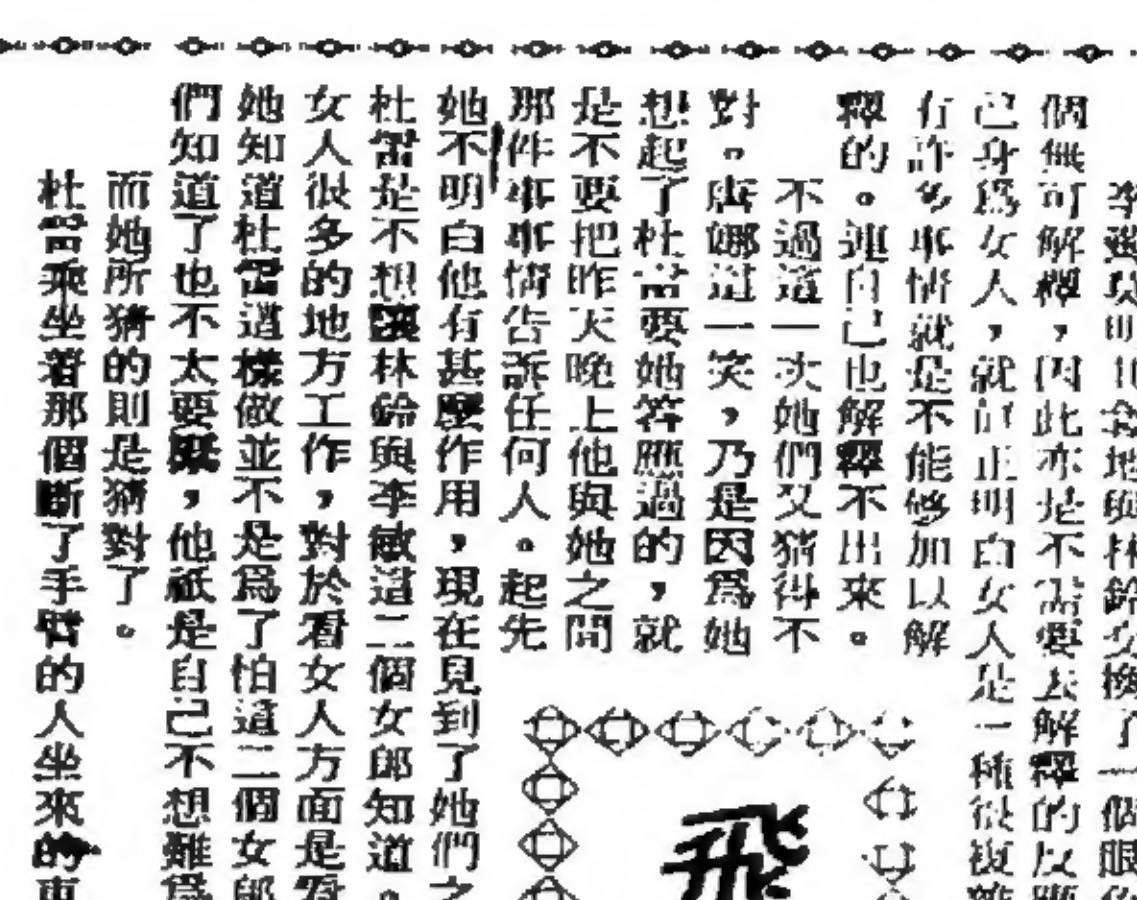 李敏莫明其妙地與林鈴交換了一個眼色
個無可解釋,因此亦是不需要去解釋的反應
己身爲女人,就可正明白女人是一種很複雜
有許多事情就是不能够加以解
釋的。連自己也解釋不出來。
不過這一次她們又猜得不
對。唐娜這一笑,乃是因爲她
想起了杜雷要她答應過的,就
是不要把昨天晚上他與她之間
那件事事情告訴任何人。起先
她不明白他有甚麼作用,現在見到了她們之
杜雷是不想讓林鈴與李敏這二個女郎知道。
女人很多的地方工作,對於看女人方面是看
她知道杜雷這樣做並不是爲了怕這二個女郎
們知道了也不太要緊,他祇是自己不想難爲
而她所猜的則是猜對了。
杜雷乘坐着那個斷了手臂的人坐來的車
飛